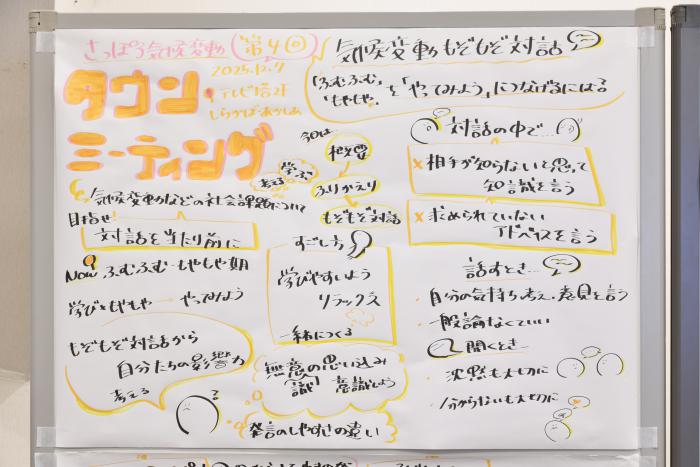 さっぽろ気候変動 第4回
タウン
ミーティング
2025.12.7
テレビ塔2F
しらかば・あかしあ
気候変動もぞもぞ対話
「ふむふむ」
「もやもや」を「やってみよう」につなげるには？
今日は
概要
学ぶ
考える
ふりかえり
もぞもぞ対話
気候変動などの社会課題について
目指せ!
対話を当たり前に
Now ふむふむ・もやもや期
学びともやもや → やってみよう
もぞもぞ対話から
自分たちの影響力
考える
すごし方
学びやすいよう
リラックス
一緒につくる
無意識の思い込み
意識しよう
発言のしやすさの違い
対話の中で…
× 相手が知らないと思って
知識を言う
× 求められていない
アドバイスを言う
話すとき…
・自分の気持ち、考え、意見を言う
・一般論なくていい
聞くとき…
・沈黙も大切に
・分からないも大切に